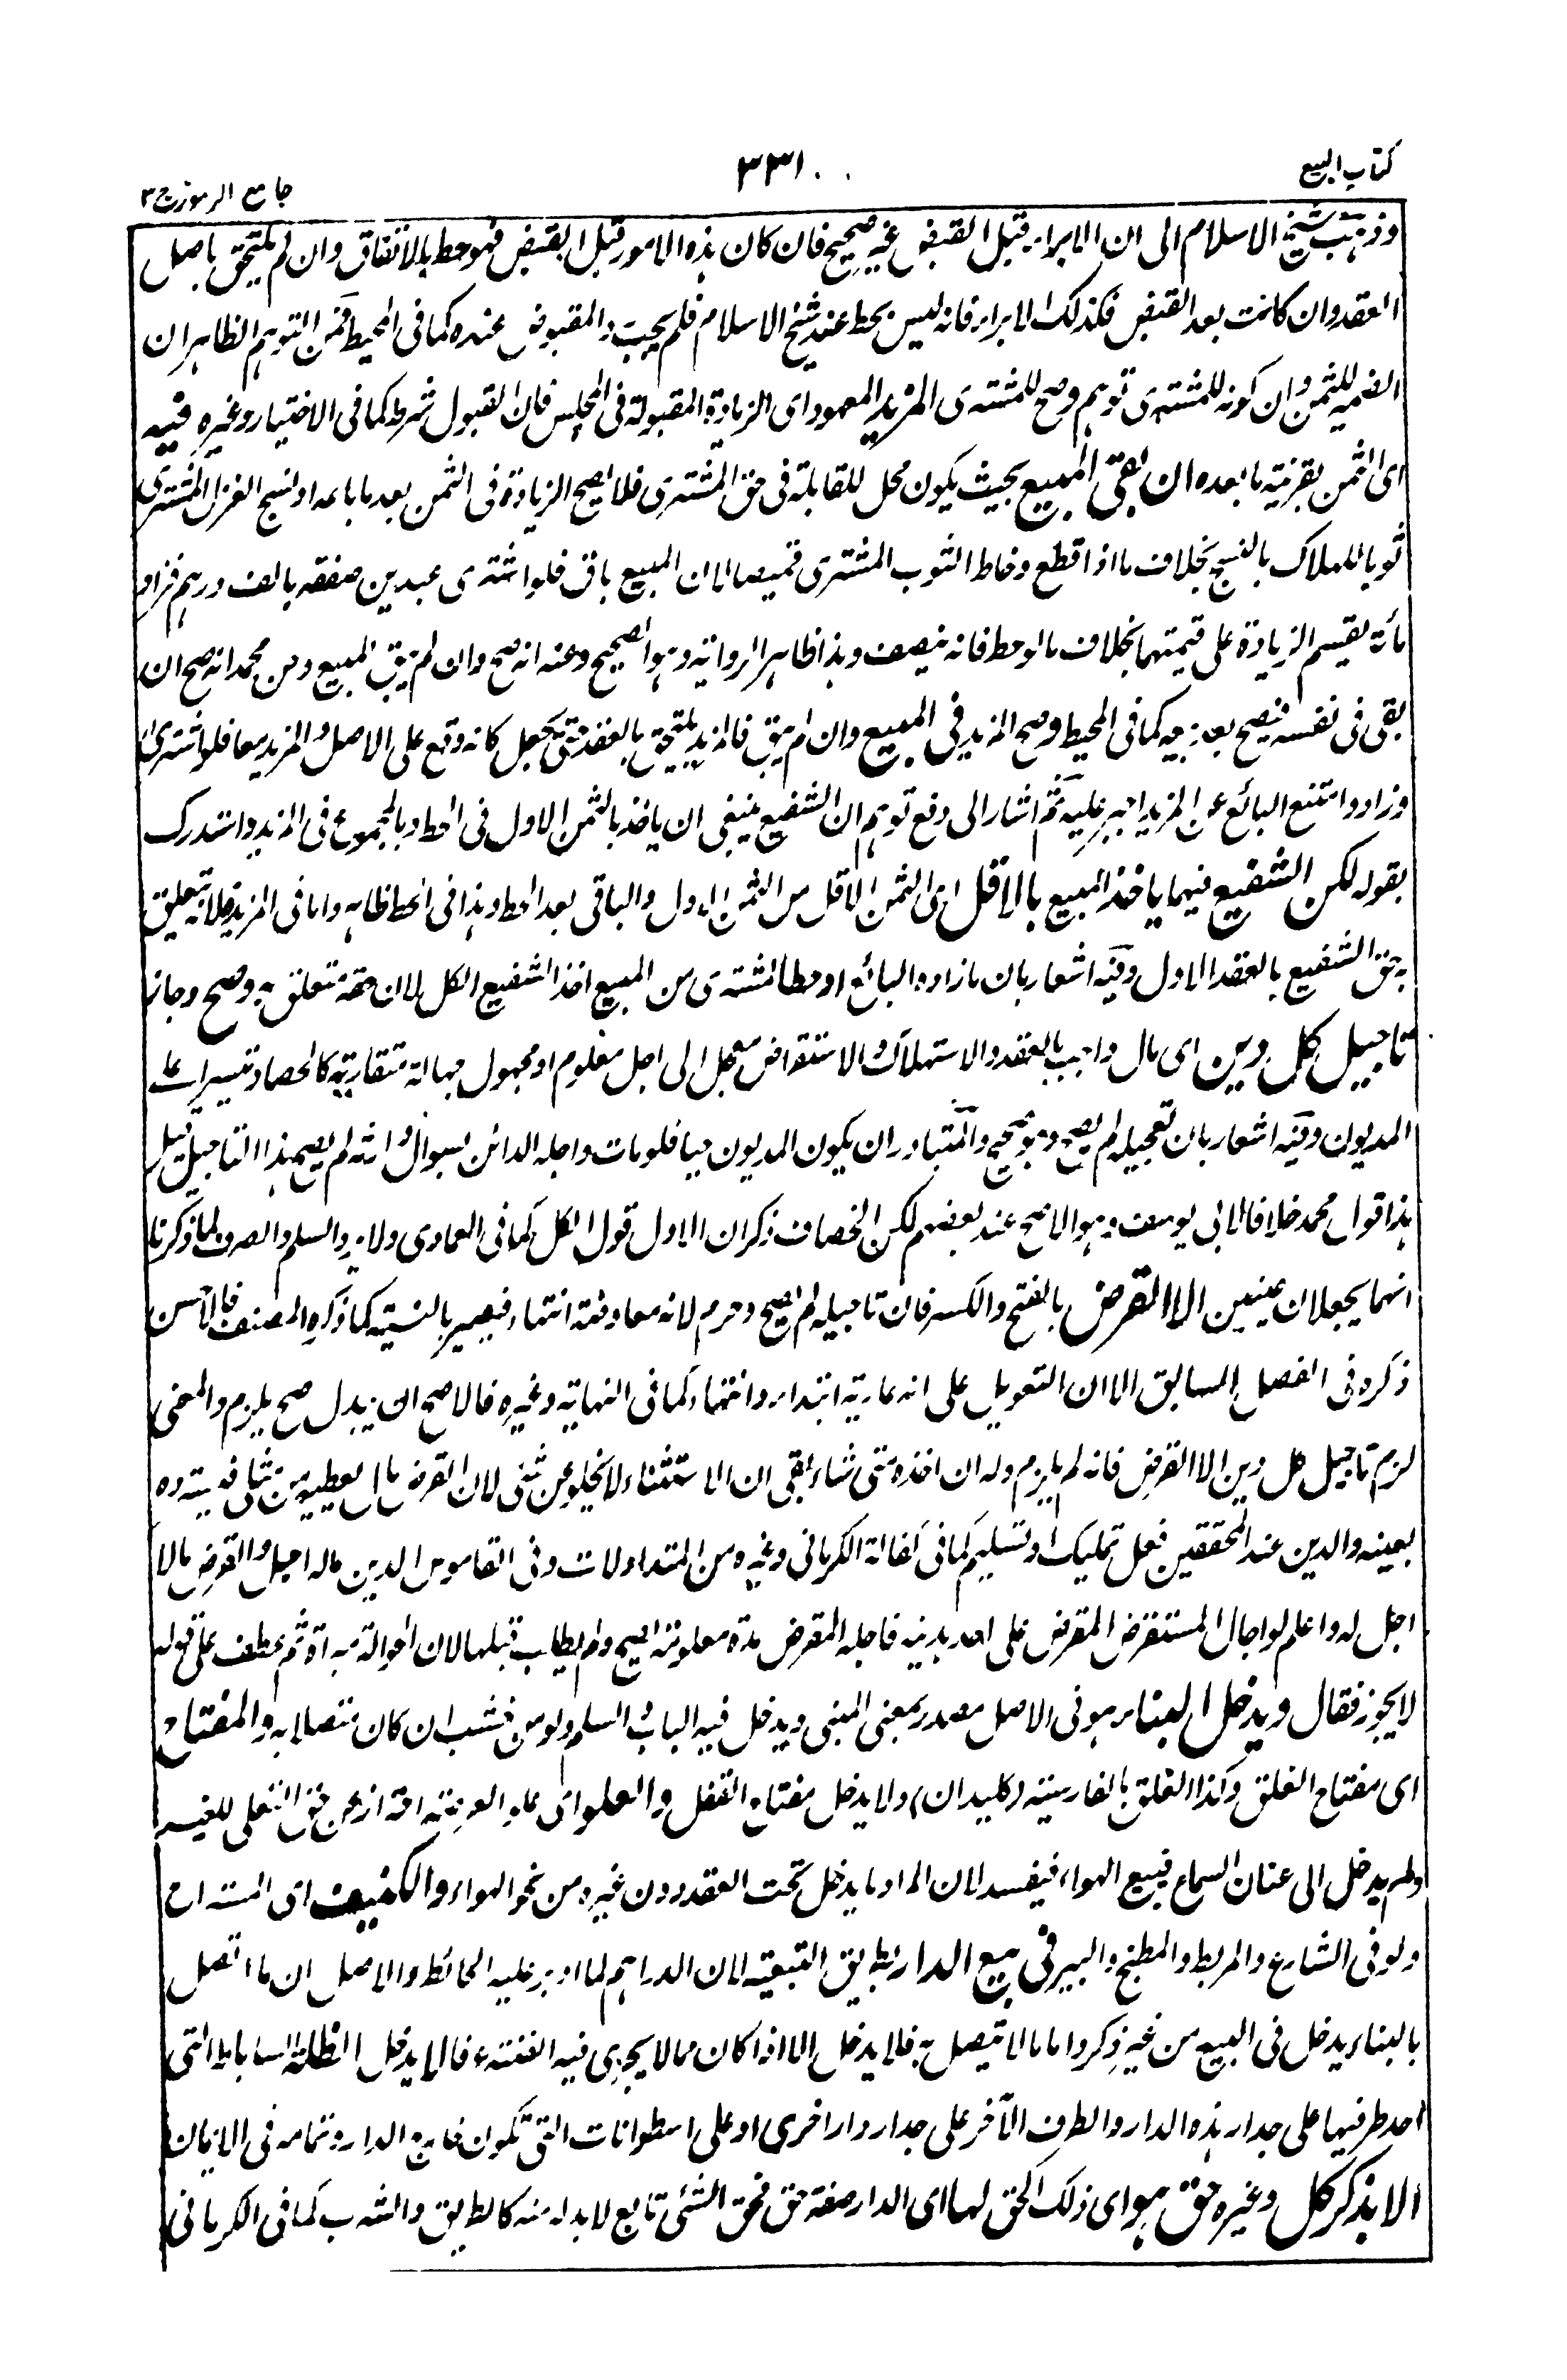 كتاب البيع
٣٣١
جامع الرموز ج ٣
وذهب شيخ الاسلام الى ان الابراء قبل القبض غير صحيح فان كان هذه الامور قبل القبض فهو حط بالاتفاق وان لم يلتحق باصل
العقد وان كانت بعد القبض فكذلك الا الابراء فانه ليس بحط عند شيخ الاسلام فلم يجب رد المقبوض عنده كما فى المحيط فمن التوهم الظاهر ان
الضمير للثمن وان كونه للمشترى توهم وصح للمشترى المزيد المعهود اى الزيادة المقبولة فى المجلس فان القبول شرط كما فى الاختيار وغيره فيه
اى الثمن بقرينة ما بعده ان بقى المبيع بحيث يكون محل للمقابلة فى حق المشترى فلا يصح الزيادة فى الثمن بعد ما باعه او نسج الغزل المشترى
ثوبا للهلاك بالنسج بخلاف ما اذا قطع وخاط الثوب المشترى قميصا لان المبيع باق فلو اشترى عبدين صفقة بالف درهم فزاد
مائة يقسم الزيادة على قيمتهما بخلاف ما لو حط فانه ينصف وهذا ظاهر الرواية وهو الصحيح وعنه انه صح وان لم يبق المبيع وعن محمد انه صح ان
بقى فى نفسه فيصح بعد بيعه كما فى المحيط وصح المزيد فى المبيع وان لم يبق فالمزيد يلتحق بالعقد حتى يجعل كانه وقع على الاصل والمزيد معا فلو اشترى
وزاد وامتنع البائع عن المزيد اجبر عليه ثم اشار الى دفع توهم ان الشفيع ينبغى ان ياخذ بالثمن الاول فى الحط وبالمجموع فى المزيد واستدرك
بقوله لكن الشفيع فيهما ياخذ المبيع بالاقل اى الثمن الاقل من الثمن الاول والباقى بعد الحط وهذا فى الحط ظاهر واما فى المزيد فلا تتعلق
به حق الشفيع بالعقد الاول وفيه اشعار بان ما زاده البائع او حط المشترى من المبيع اخذ الشفيع الكل لان حقه متعلق به وصح وجاز
تاجيل كل دين اى مال واجب بالعقد والاستهلاك والاستقراض معجل الى اجل معلوم او مجهول جهالة متقاربة كالحصاد تيسيرا على
المديون وفيه اشعار بان تعجيله لم يصح وهو صحيح والمتبادر ان يكون المديون حيا فلو مات واجله الدائن بسوال وارثه لم يصح هذا التاجيل قيل
هذا قول محمد خلافا لابى يوسف وهو الاصح عند بعضهم لكن الخصاف ذكر ان الاول قول الكل كما فى العمادى ولا يرد السلم والصرف لما ذكرنا
انهما يجعلان عينين الا القرض بالفتح والكسر فان تاجيله لم يصح وحرم لانه معاوضة انتهاء فيصير بالنسية كما ذكره المصنف فالاحسن
ذكره فى الفصل السابق الا ان التعويل على انه عارية ابتداء وانتهاء كما فى النهاية وغيره فالاصح ان يبدل صح بلزم والمعنى
لزم تاجيل كل دين الا القرض فانه لم يلزم وله ان اخذه متى شاء بقى ان الاستثناء لا يخلو عن شئ لان القرض مال يعطيه من مثلى فيسترده
بعينه والدين عند المحققين فعل تمليك او تسليم كما فى كفالة الكرمانى وغيره من المتداولات وفى القاموس الدين ماله اجل والقرض ما لا
اجل له واعلم لو احال المستقرض المقرض على احد بدينه فاجله المقرض مدة معلومة يصح ولم يطالب قبلها لان الحوالة مبراة ثم عطف على قوله
لا يجوز فقال ويدخل البناء هو فى الاصل مصدر بمعنى المبنى ويدخل فيه الباب والسلم ولو من خشب ان كان متصلا به والمفتاح
اى مفتاح الغلق وكذا الغلق بالفارسية (كليدان) ولا يدخل مفتاح القفل والعلو اى علو العرصة احتراز عن حق التعلى للغير
ولم يدخل الى عنان السماء فبيع الهواء فيفسد لان المراد ما يدخل تحت العقد دون غيره من نحو الهواء والكنيف اى المستراح
ولو فى الشارع والمربط والمطبخ والبير فى بيع الدار بطريق التبعية لان الدار اسم لما ادير عليه الحائط والاصل ان ما اتصل
بالبناء يدخل فى البيع من غير ذكر واما ما لا يتصل به فلا يدخل الا اذا كان مما لا يجرى فيه الضنة فالا يدخل الظلة الساباط التى
احد طرفيها على جدار هذه الدار والطرف الآخر على جدار دار اخرى او على اسطوانات التى تكون خارج الدار وتمامه فى الايمان
الا بذكر كل وغيره حق هو اى ذلك الحق لها اى الدار صفة حق فحق الشئ تابع لا بد له منه كالطريق والشرب كما فى الكرمانى